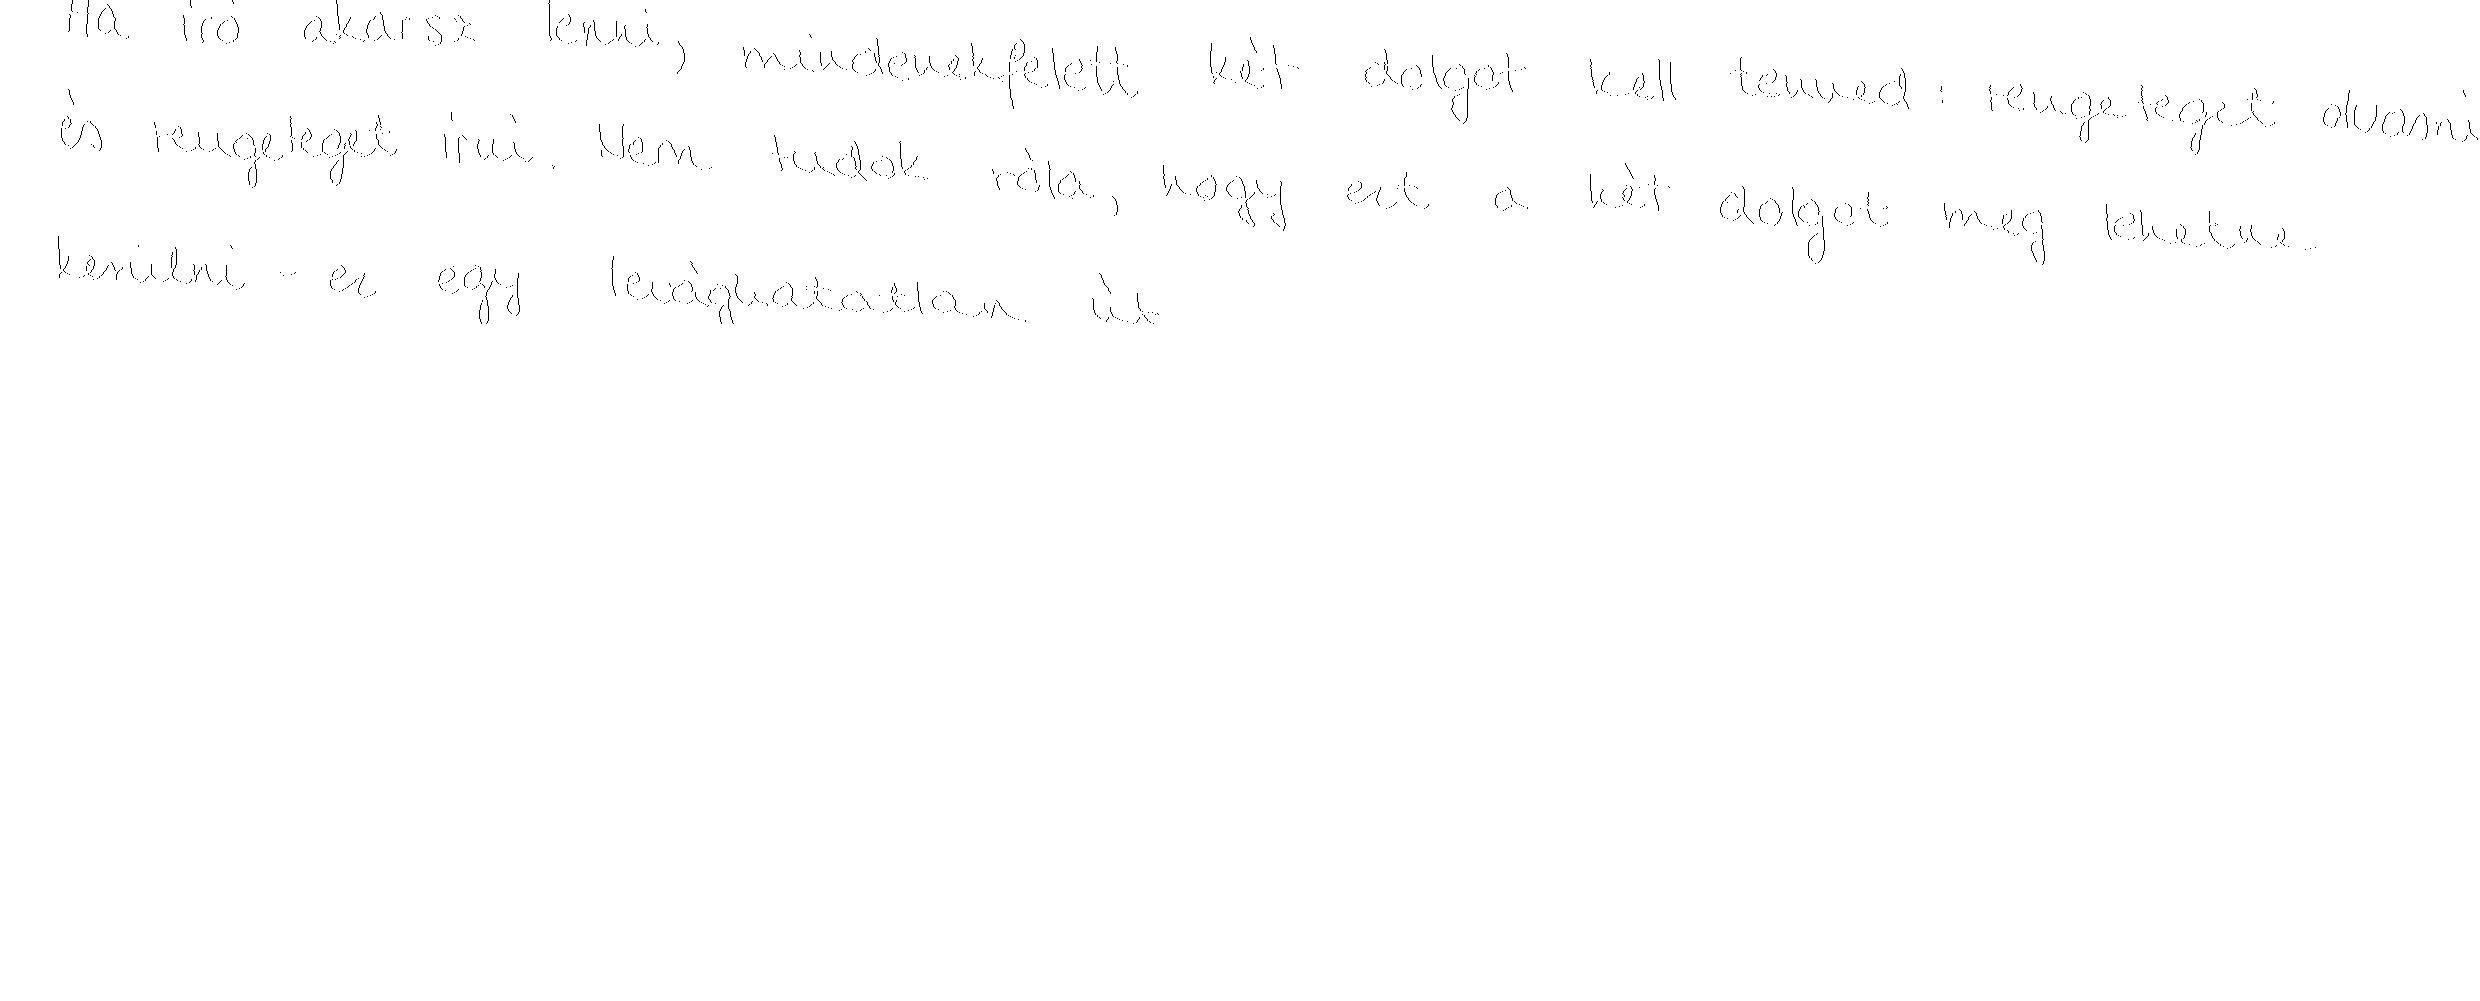 Ha író akarsz lenni, mindenekfelett két dolgot kell tenned: rengeteget olvasni
és rengeteget írni. Nem tudok róla, hogy ezt a két dolgot meg lehetne
kerülni - ez egy levághatatlan út